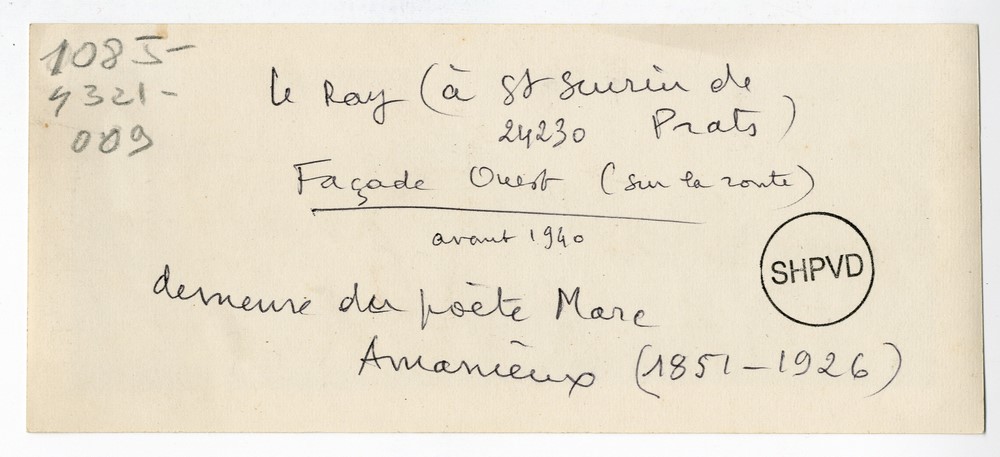 1085-
4321-
009
le Ray (à St Seurin de
24230 Prats)
Façade Ouest (sur la route)
avant 1940
SHPVD
demeure du poète Marc
Amanieux (1851-1926)